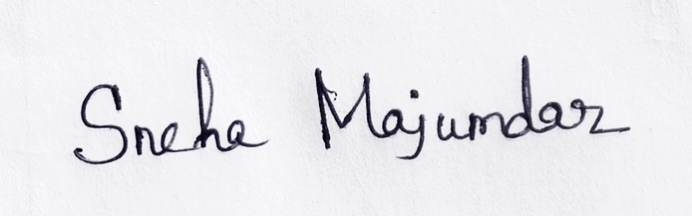 Sneha Majumdar